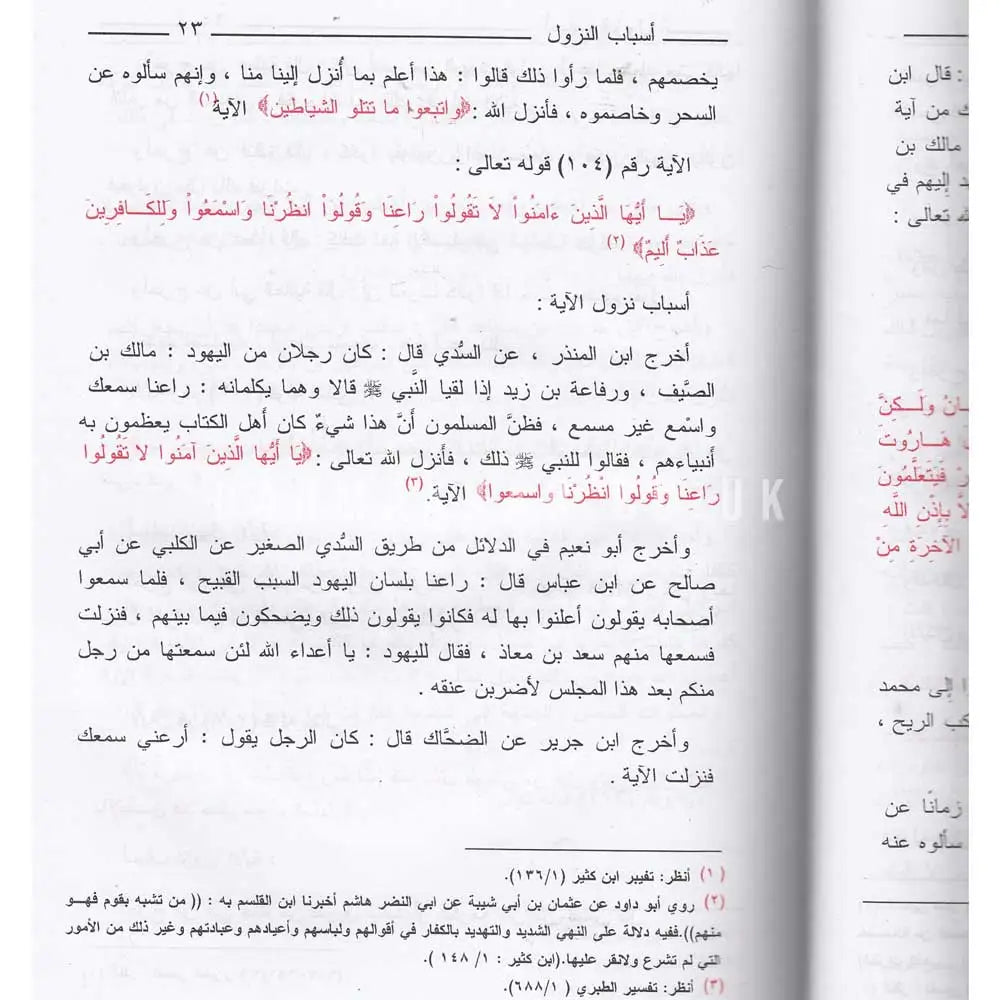 أسباب النزول ٢٣
يخصمهم ، فلما رأوا ذلك قالوا : هذا أعلم بما أُنزل إلينا منا ، وإنهم سألوه عن
السحر وخاصموه ، فأنزل الله :﴿واتبعوا ما تتلو الشياطين﴾ الآية(١)
الآية رقم (١٠٤) قوله تعالى :
﴿يَـا أَيُّهَا الَّذِينَ ءَامَنُواْ لاَ تَقُولُواْ رَاعِنَا وَقُولُواْ انظُرْنَا وَاسْمَعُواْ وَلِلكَـافِرِينَ
عَذَابٌ أَلِيمٌ﴾ (٢)
أسباب نزول الآية :
أخرج ابن المنذر ، عن السُّدي قال : كان رجلان من اليهود : مالك بن
الصَّيف ، ورفاعة بن زيد إذا لقيا النَّبي ﷺ قالا وهما يكلمانه : راعنا سمعك
واسْمع غير مسمع ، فظنَّ المسلمون أنَّ هذا شيءٌ كان أهل الكتاب يعظمون به
أنبياءهم ، فقالوا للنبي ﷺ ذلك ، فأنزل الله تعالى :﴿يَا أَيُّها الَّذينَ آمَنُوا لا تَقُولُوا
رَاعِنَا وَقُولُوا انْظُرْنَا واسمعوا﴾ الآية.(٣)
وأخرج أبو نعيم في الدلائل من طريق السُّدي الصغير عن الكلبي عن أبي
صالح عن ابن عباس قال : راعنا بلسان اليهود السبب القبيح ، فلما سمعوا
أصحابه يقولون أعلنوا بها له فكانوا يقولون ذلك ويضحكون فيما بينهم ، فنزلت
فسمعها منهم سعد بن معاذ ، فقال لليهود : يا أعداء الله لئن سمعتها من رجل
منكم بعد هذا المجلس لأضربن عنقه .
وأخرج ابن جرير عن الضحَّاك قال : كان الرجل يقول : أرعني سمعك
فنزلت الآية .
(١) أنظر: تفيبر ابن كثير (١٣٦/١).
(٢) روي أبو داود عن عثمان بن أبي شيبة عن ابي النضر هاشم أخبرنا ابن القلسم به : (( من تشبه بقوم فهـو
منهم)).ففيه دلالة على النهي الشديد والتهديد بالكفار في أقوالهم ولباسهم وأعيادهم وعبادتهم وغير ذلك من الأمور
التي لم تشرع ولانقر عليها.(ابن كثير : ١/ ١٤٨ ).
(٣) أنظر: تفسير الطبري ( ٦٨٨/١).
: قال ابن
من آية
مالك بن
إليهم في
تعالى :
وَلَـكِنَّ
هَـارُوتَ
فَيَتَعَلَّمُونَ
بِإِذْنِ اللَّه
الآخِرَةِ مِنْ
إلى محمد
الريح ،
زمانًا عن
سألوه عنه
UK